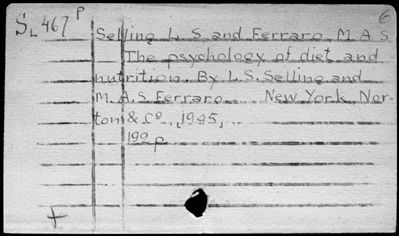 SL 467 P
6
Selling L. S. and Ferraro, M. A. S.
The psychology of diet and
nutrition. By L. S. Selling and
M. A. S. Ferraro. New York Nor-
ton & Co., 1945,
190 p